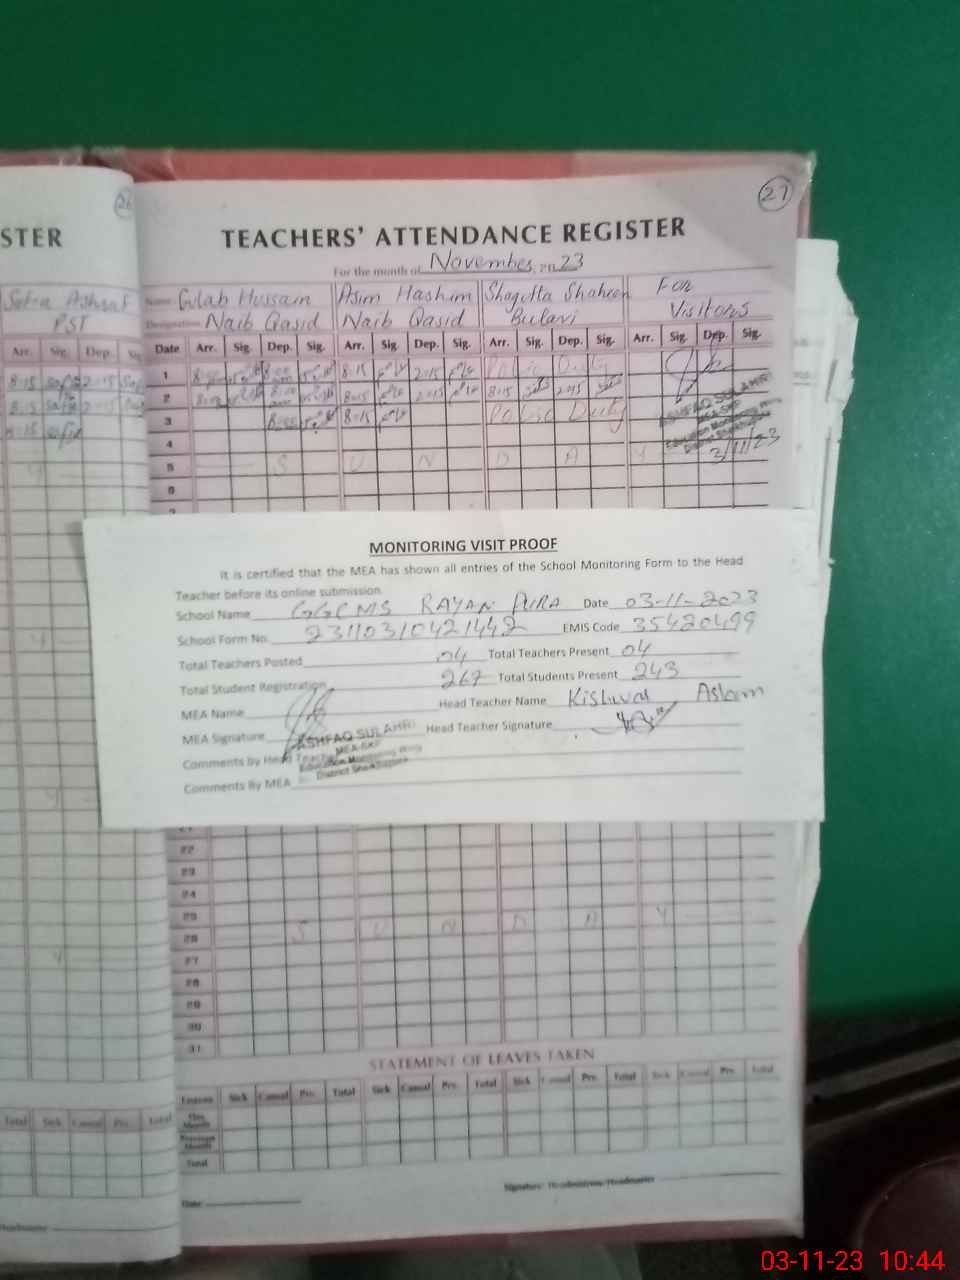 26
STER
Sefra Ashraf
PST
Arr. Sig. Dep. Sig.
8:15 2:15
8:15 2:15
8:15
27
TEACHERS' ATTENDANCE REGISTER
For the month of November, 2023
Name Gulab Hussain Asim Hashim Shagufta Shaheen For
Designation Naib Qasid Naib Qasid Bulavi Visitors
Date Arr. Sig. Dep. Sig. Arr. Sig. Dep. Sig. Arr. Sig. Dep. Sig. Arr. Sig. Dep. Sig.
1 8:00 8:00 8:15 2:15 Polio Duty
2 8:00 8:00 8:15 2:15 8:15 2:15
3 8:00 8:15 Polio Duty
4
5 S U N D A Y
6
ASHFAQ SULAHRI
MEA-SKP
Education Monitoring Wing
District Sheikhupura
2/11/23
MONITORING VISIT PROOF
It is certified that the MEA has shown all entries of the School Monitoring Form to the Head
Teacher before its online submission.
School Name GGCMS RAYAN PURA Date 03-11-2023
School Form No. 23110310421442 EMIS Code 35420499
Total Teachers Posted 04 Total Teachers Present 04
Total Student Registration 267 Total Students Present 243
MEA Name Head Teacher Name Kishwar Aslam
MEA Signature Head Teacher Signature
ASHFAQ SULAHRI
MEA-SKP
Education Monitoring Wing
District Sheikhupura
Comments by Head Teacher
Comments By MEA
21
22
23
24
25
26 S U N D A Y
27
28
29
30
31
STATEMENT OF LEAVES TAKEN
Leaves Sick Casual Prv. Total Sick Casual Prv. Total Sick Casual Prv. Total Sick Casual Prv. Total
This Month
Previous Month
Total
Total Sick Casual Prv. Total
Date
Signature: Headmistress/Headmaster
Headmaster
03-11-23 10:44